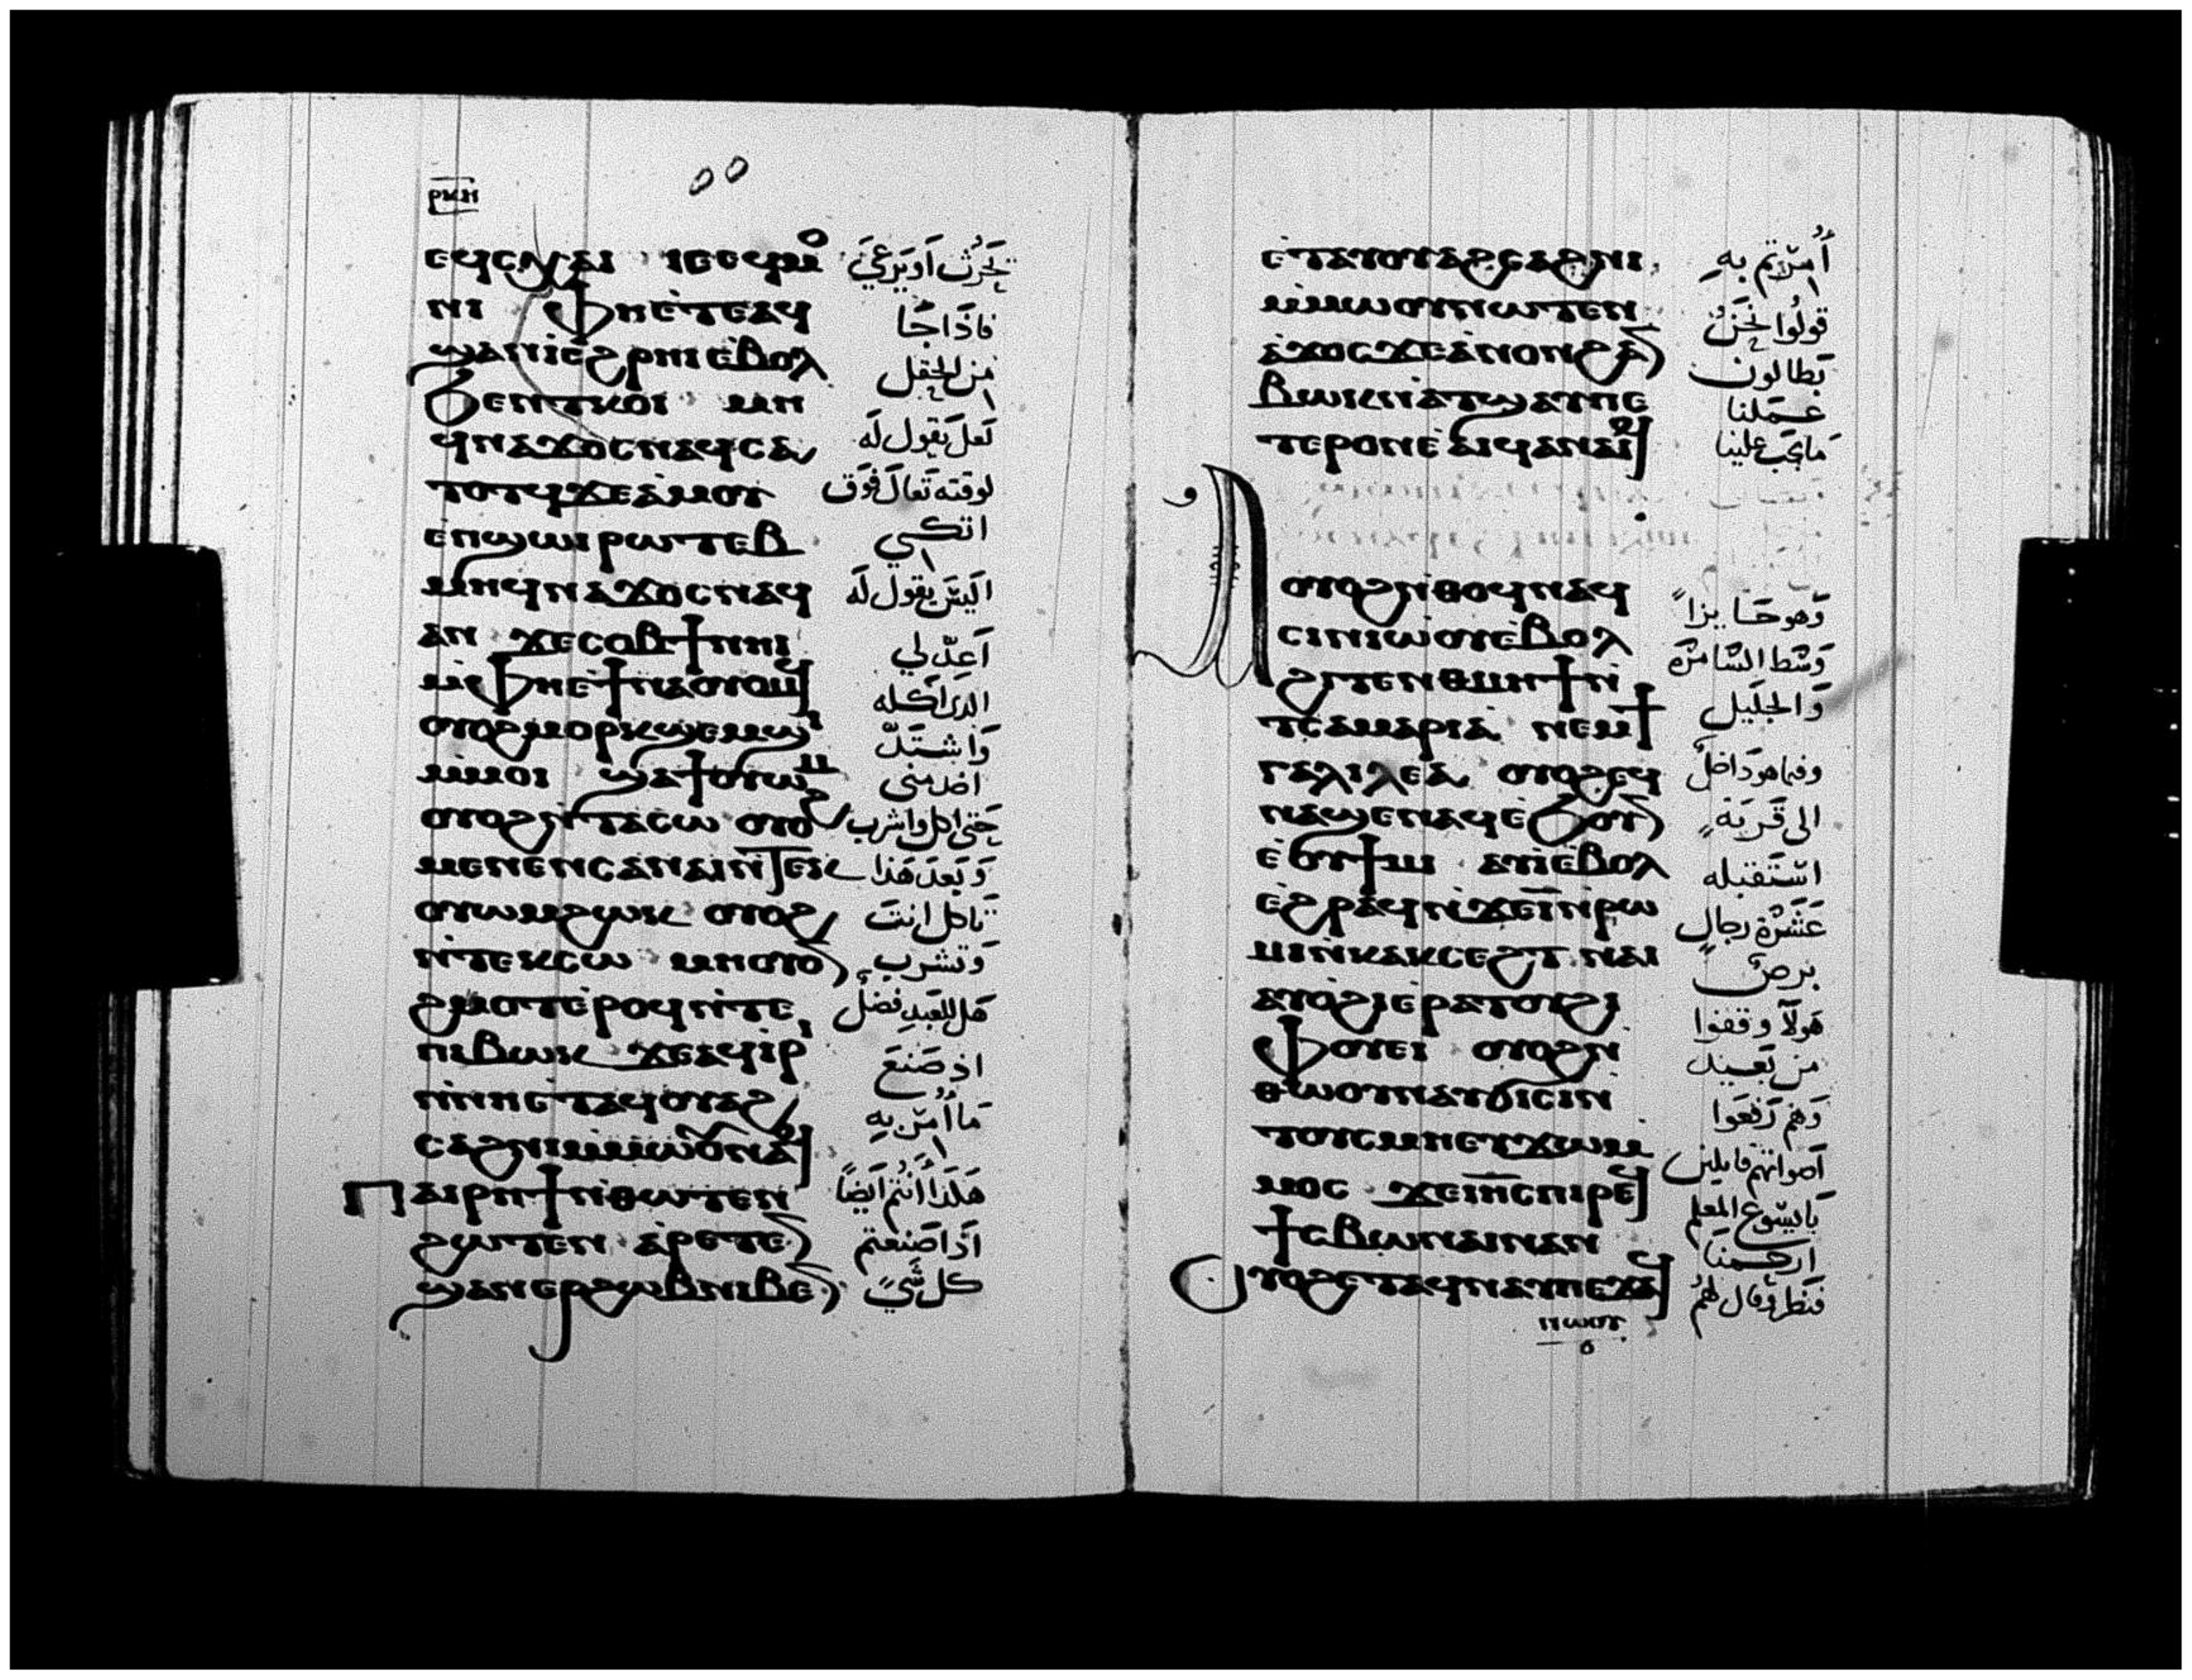 ⲣⲕⲏ
ⲉϥⲥⲭⲁⲓ ⲓⲉⲉϥⲙⲟ تحرث او يرعي
ⲛⲓ ⲫⲏⲉ̀ⲧⲉⲁϥ فاذا جا
ϣⲁⲛⲓ̀ⲉϩⲣⲏⲓⲉ̀ⲃⲟⲗ من الحقل
ϧⲉⲛⲧⲕⲟⲓ ⲙⲏ لعل يقول له
ϥⲛⲁϫⲟⲥⲛⲁϥⲥⲁ لوقته تعال فوق
ⲧⲟⲧϥϫⲉⲁ̀ⲙⲟⲩ اتكي
ⲉ̀ⲡϣⲱⲓⲣⲱⲧⲉⲃ
ⲙⲏϥⲛⲁϫⲟⲥⲛⲁϥ اليس يقول له
ⲁⲛ ϫⲉⲥⲟⲃϯⲛⲏⲓ اعد لي
ⲙ̀ⲫⲏⲉ̀ϯⲛⲁⲟⲩⲟⲙϥ الدى اكله
ⲟⲩⲟϩⲙⲟⲣⲕϣⲉⲙϣⲓ واشتد
ⲙ̀ⲙⲟⲓ ϣⲁϯⲟⲩⲱⲙ اخدمنى
ⲟⲩⲟϩⲛ̀ⲧⲁⲥⲱ ⲟⲩⲟϩ حتى اكل واشرب
ⲙⲉⲛⲉⲛⲥⲁⲛⲁⲓⲛ̀ⲧⲉⲕ وبعد هذا
ⲟⲩⲱⲙϩⲱⲕ ⲟⲩⲟϩ تاكل انت
ⲛ̀ⲧⲉⲕⲥⲱ ⲙⲏⲟⲩⲟⲛ وتشرب
ϩⲙⲟⲧⲉ̀ⲣⲟϥⲛ̀ⲧⲉ هل للعبد فضل
ⲡⲓⲃⲱⲕ ϫⲉⲁϥⲓ̀ⲣⲓ اذ صنع
ⲛ̀ⲛⲏⲉ̀ⲧⲁϥⲟⲩⲁϩ ما امر به
ⲥⲁϩⲛⲓⲙ̀ⲙⲱⲟⲩⲛⲁϥ
ⲡⲁⲓⲣⲏϯⲛ̀ⲑⲱⲧⲉⲛ هكذا انتم ايضاً
ϩⲱⲧⲉⲛ ⲁ̀ⲣⲉⲧⲉⲛ اذا صنعتم
ϣⲁⲛⲉⲣϩⲱⲃⲛⲓⲃⲉⲛ كل شيً
ⲉ̀ⲧⲁⲩⲟⲩⲁϩⲥⲁϩⲛⲓ أمرتم به
ⲙ̀ⲙⲱⲟⲩⲛⲱⲧⲉⲛ قولوا نحن
ⲁ̀ϫⲟⲥϫⲉⲁ̀ⲛⲟⲛϩⲁⲛ بطالون
ⲃⲱⲕⲛ̀ⲁⲧϣⲁⲩⲡⲉ عملنا
ⲧⲉⲣⲟⲛⲉ̀ⲁⲓϥⲁⲛⲁⲓϥ ما يجب علينا
ⲟⲩⲟϩⲛ̀ⲑⲟϥⲛⲁϥ وهو جايزاً
ⲥⲓⲛⲓⲱⲟⲩⲉ̀ⲃⲟⲗ وسط السامرة
ϩⲓⲧⲉⲛⲑⲙⲏϯⲛ̀ والجليل
ⲧⲥⲁⲙⲁⲣⲓⲁ̀ ⲛⲉⲙϯ
ⲅⲁⲗⲓⲗⲉⲁ̀ ⲟⲩⲟϩⲉϥ وفيما هو داخل
ⲛⲁϣⲉⲛⲁϥⲉ̀ϧⲟⲩⲛ الى قرية
ⲉ̀ⲟⲩϯⲙⲓ ⲁⲩⲓ̀ⲉ̀ⲃⲟⲗ استقبله
ⲉ̀ϩⲣⲁϥⲛ̀ϫⲉⲓ̅ⲛ̀ⲣⲱ عشرة رجال
ⲙⲓⲛ̀ⲕⲁⲕⲥⲉϩⲧ ⲛⲁⲓ برص
ⲁⲩⲟ̀ϩⲓⲉ̀ⲣⲁⲧⲟⲩϩⲓ هولا وقفوا
ⲫⲟⲩⲉⲓ ⲟⲩⲟϩⲛ̀ من بعيد
ⲑⲱⲟⲩⲛⲁⲩϭⲓⲥⲓⲛ̀ وهم رفعوا
ⲧⲟⲩⲥⲙⲏⲉⲩϫⲱⲙ̀ اصواتهم قايلين
ⲙⲟⲥ ϫⲉⲓⲏ̅ⲥⲡⲓⲣⲉϥ يا يسوع المعلم
ϯⲥⲃⲱⲛⲁⲓⲛⲁⲛ ارحمنا
ⲟⲩⲟϩⲉⲧⲁϥⲛⲁⲩⲡⲉϫⲁϥ فنظر وقال لهم
ⲛⲱⲟⲩ